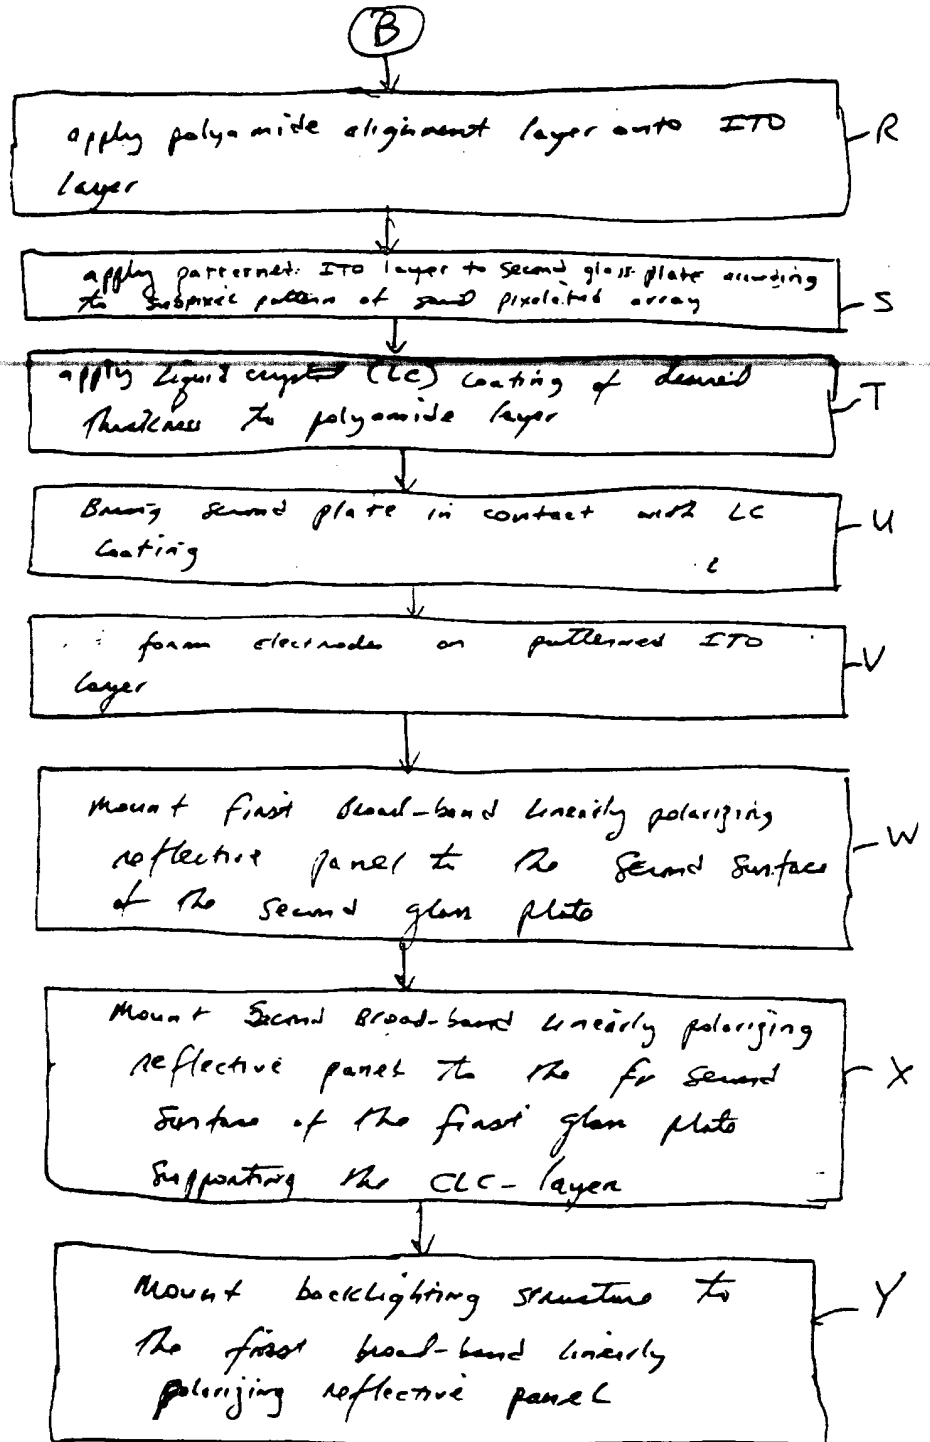 B
apply polyamide alignment layer onto ITO
layer
R
apply patterned ITO layer to second glass plate according
to subpixel pattern of said pixelated array
S
apply Liquid crystal (LC) coating of desired
thickness to polyamide layer
T
Bring second plate in contact with LC
Coating
U
form electrodes on patterned ITO
layer
V
Mount first Broad-band linearly polarizing
reflective panel to the second surface
of the second glass plate
W
Mount Second Broad-band linearly polarizing
reflective panel to the fr second
surface of the first glass plate
supporting the CLC-layer
X
Mount backlighting structure to
the first broad-band linearly
polarizing reflective panel
Y